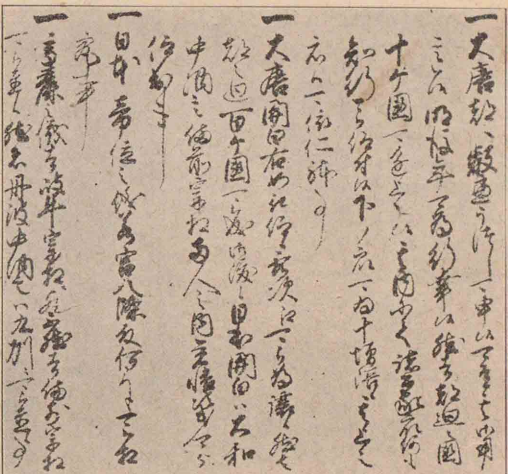 一大唐都へ叡慮うつし可申候可有其用意
候明後年可為行幸候然者都廻之国
十ケ国可進上之候其内にて諸公家衆何も
知行可被仰付候下ノ衆可為十増倍其上之
衆ハ可依仁躰事
一大唐関白右如被仰秀次江可被為譲然者
都之廻百ケ国可被成御渡候日本関白ハ大和
中納言備前宰相両人之内覚悟次第可被
仰出事
一日本帝位之儀若宮八条殿何にても可被相
究事
一高麗之儀者岐阜宰相歟不然者備前宰相
可被置候然者丹波中納言ハ九州ニ可被置候事